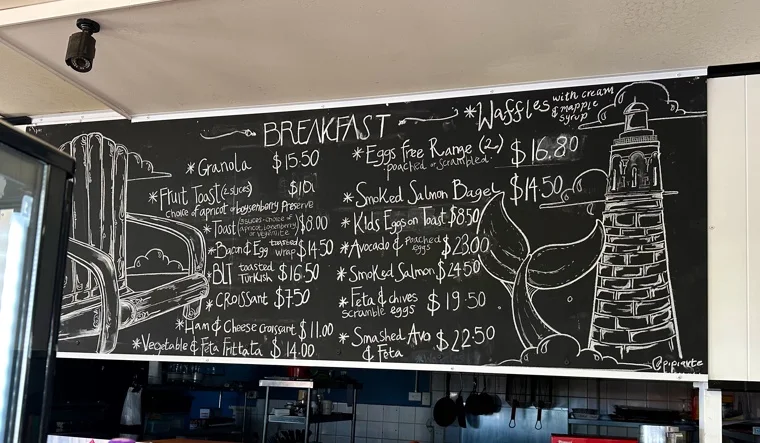 BREAKFAST
* Granola $15.50
* Fruit Toast (2 slices) $10
choice of apricot or boysenberry Preserve
* Toast (2 slices - choice of $8.00
apricot, boysenberry
or vegemite)
* Bacon & Egg toasted wrap $14.50
* BLT toasted $16.50
Turkish
* CROISSANT $7.50
* Ham & Cheese croissant $11.00
* Vegetable & Feta Frittata $14.00
* Waffles with cream
& mapple
syrup
* Eggs Free Range (2) $16.80
poached or scrambled.
* Smoked Salmon Bagel $14.50
* Kids Eggs on Toast $8.50
* Avocado & poached $23.00
eggs
* Smoked Salmon $24.50
* Feta & chives $19.50
scramble eggs
* Smashed Avo $22.50
& Feta
@pipiarte